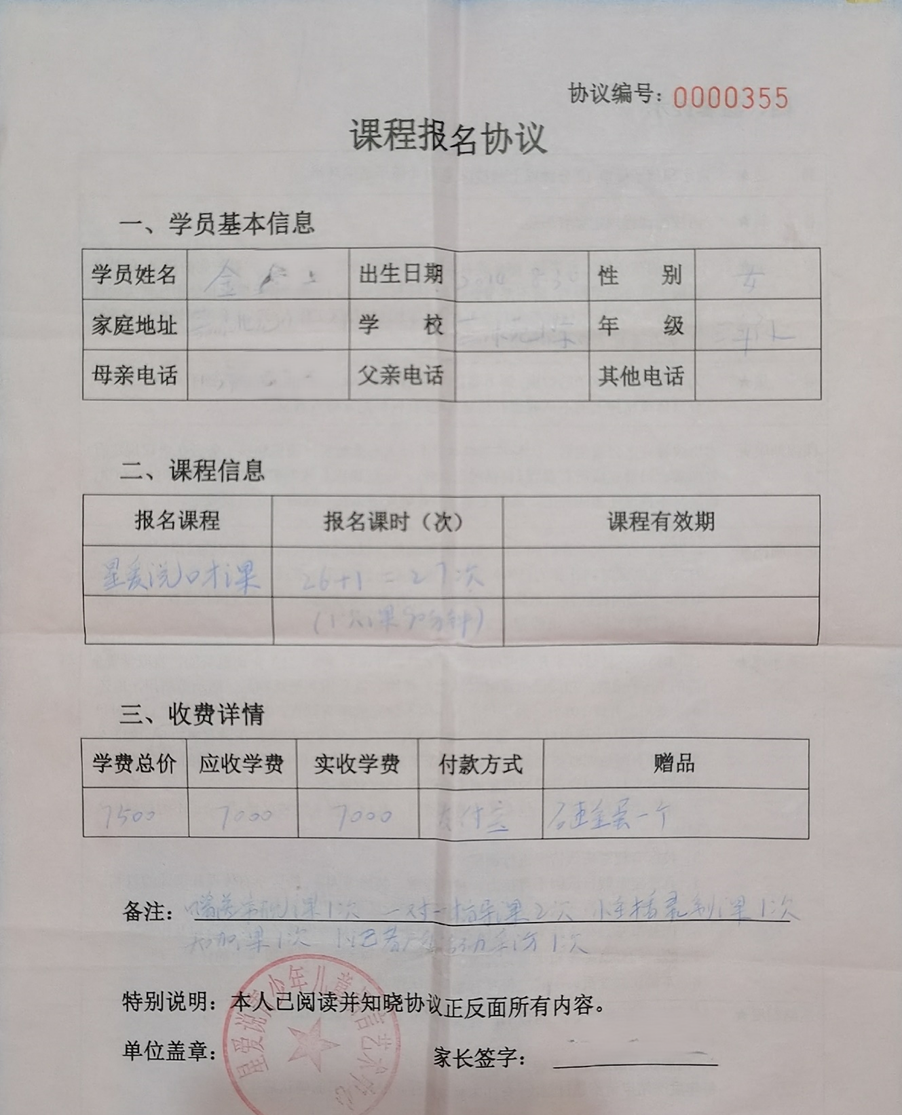 协议编号：0000355
课程报名协议
一、学员基本信息
学员姓名 金 出生日期 性 别 女
家庭地址 学 校 年 级
母亲电话 父亲电话 其他电话
二、课程信息
报名课程 报名课时（次） 课程有效期
星爱说口才课 26+1=27次
(1次课90分钟)
三、收费详情
学费总价 应收学费 实收学费 付款方式 赠品
7500 7000 7000 支付宝 砸金蛋一个
备注： 课1次 一对一指导课2次 录制课1次
课1次 1次
特别说明：本人已阅读并知晓协议正反面所有内容。
单位盖章： 家长签字：
星爱说青少年儿童语言艺术